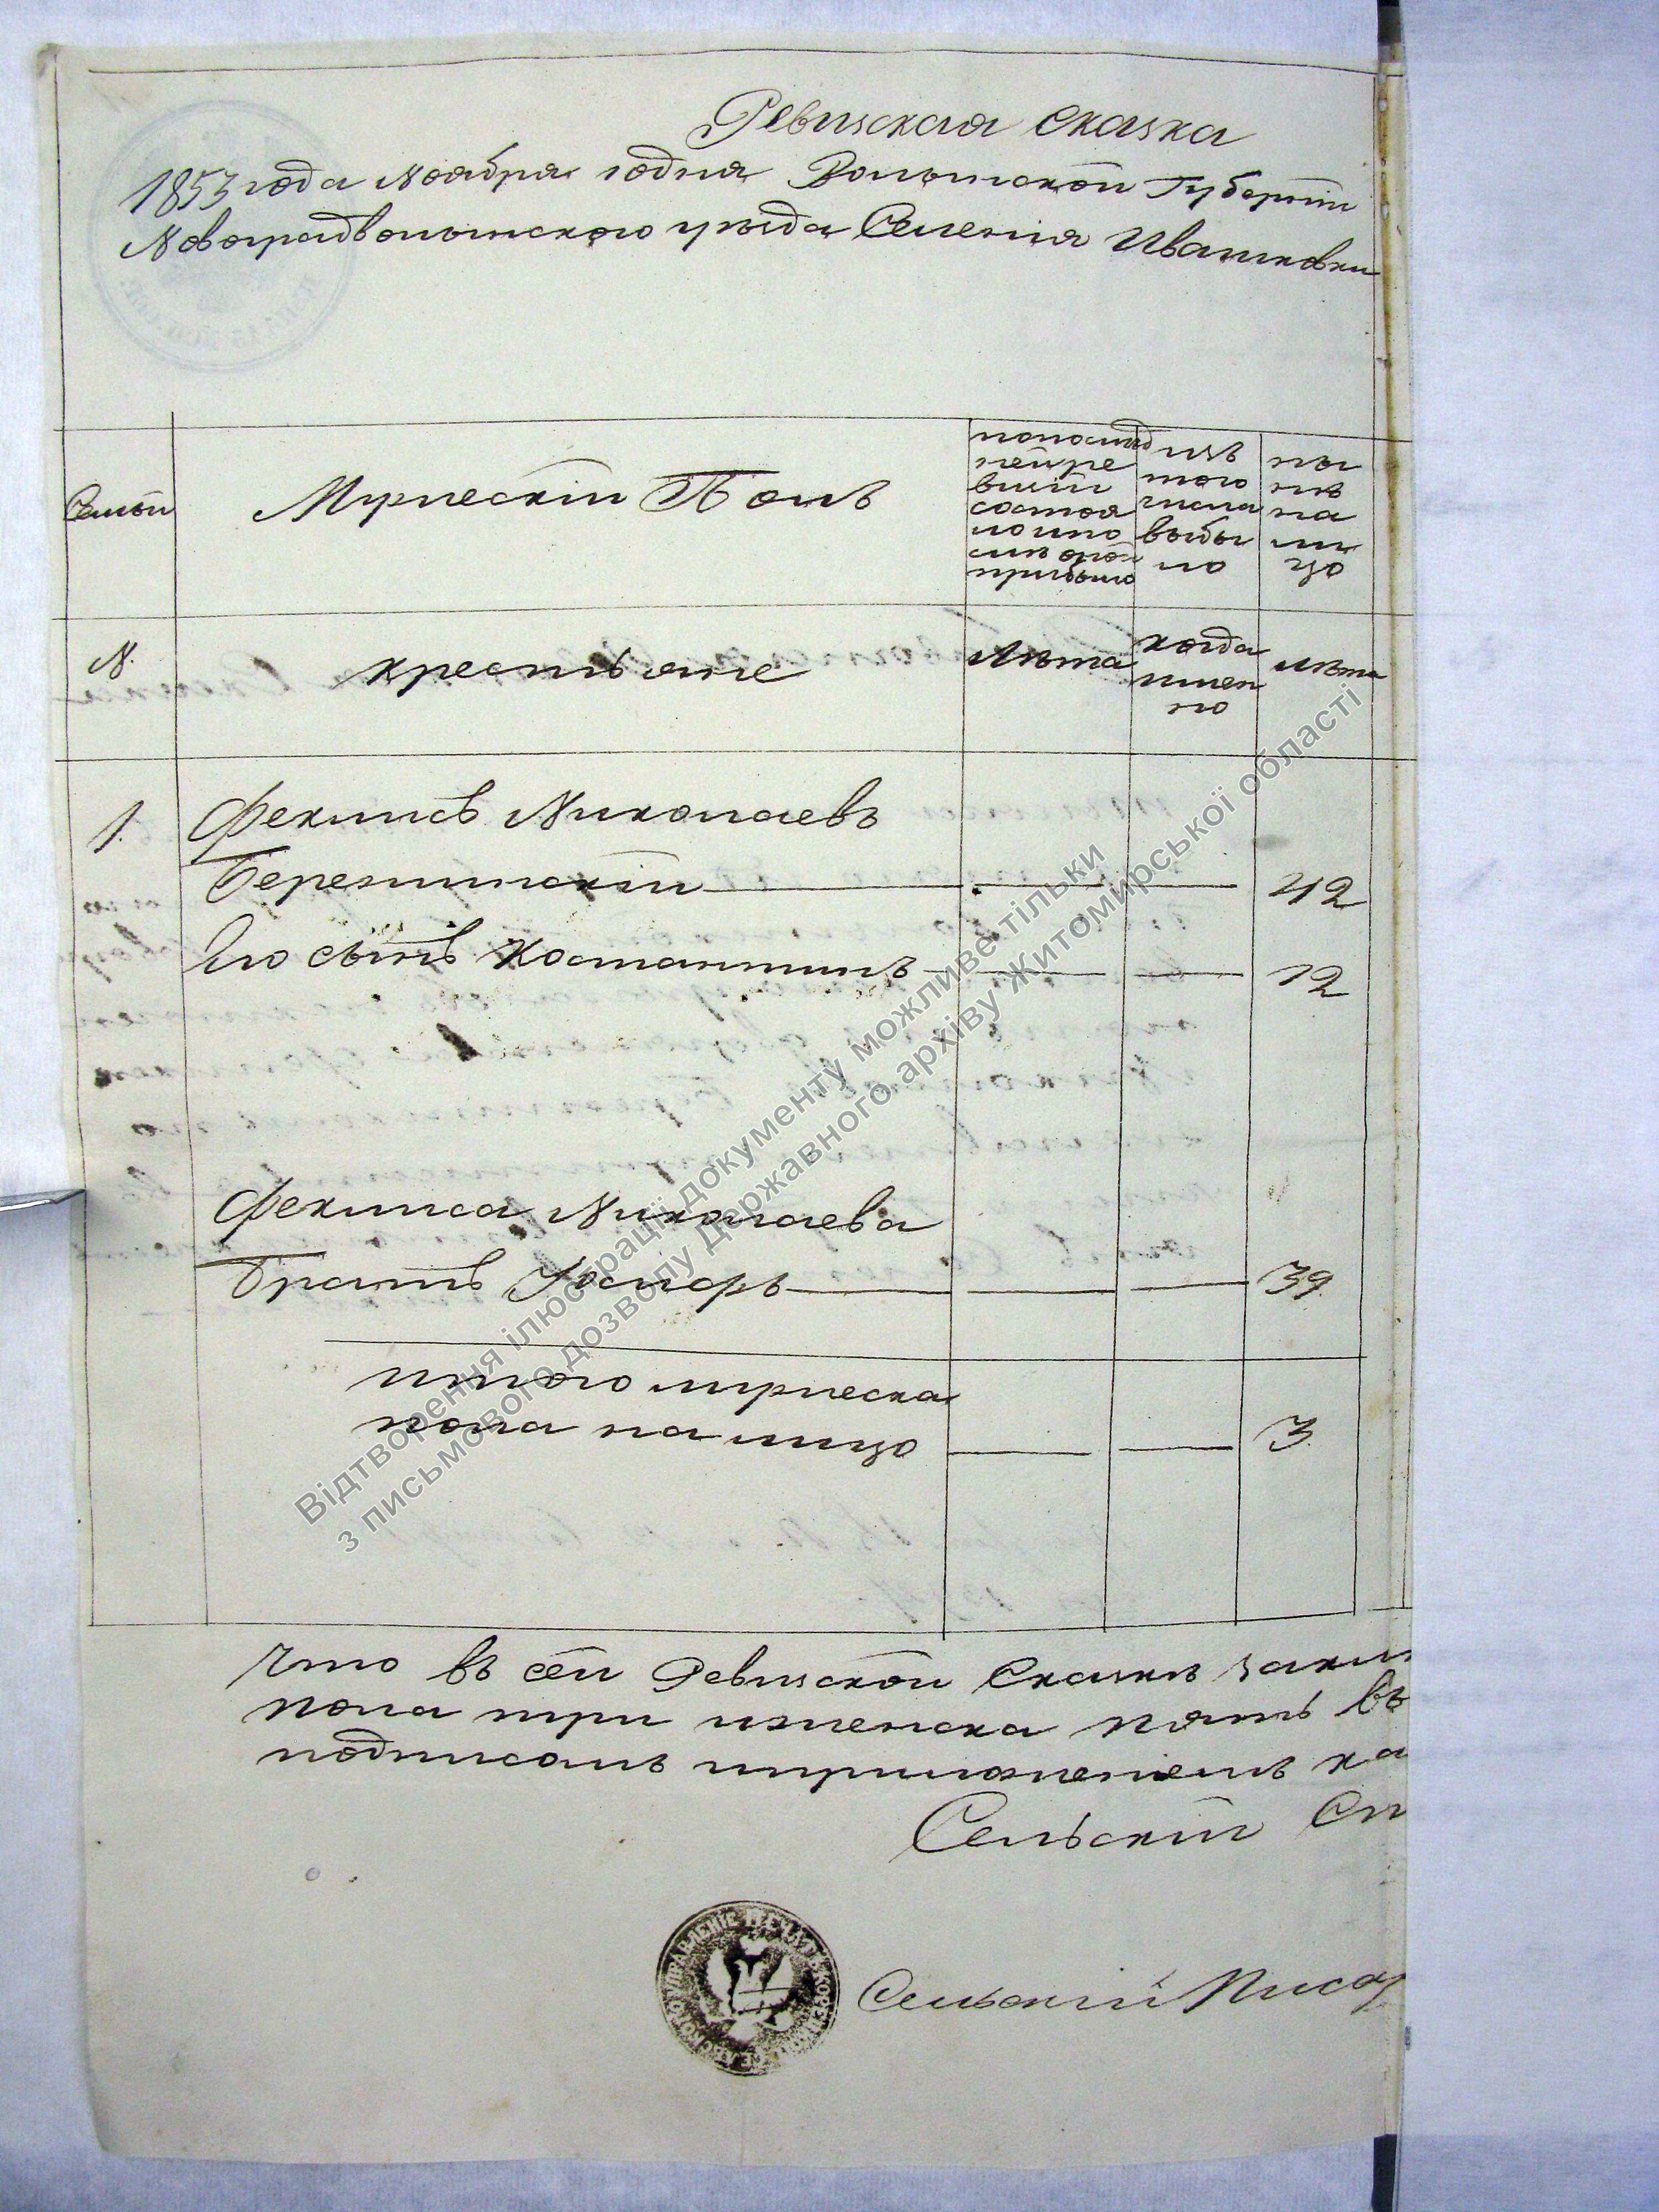 Ревизская Сказка
1853 года Ноября годня Волынской Губерніи
Новоградволынского уѣзда Селенія Ивашковки
Семьи
Мужескій Полъ
попослѣд
ней ре
визіи
состоя
ло и по
слѣ оной
прибыло
изъ
того
числа
выбы
ло
ны
нѣ
на
ли
цо
N.
крестьяне
Лѣта
когда
имен
но
Лѣта
1.
Феликсъ Николаевъ
Березинскій 42
Его сынъ Костантинъ 12
Феликса Николаева
братъ Госпаръ 39
итого мужеска
пола на лицо 3
Что въ сей Ревизской Сказки
пола три и женска пять въ
подписомъ и приложеніемъ
Сельскій
Сельскій Писар
Відтворення ілюстрації документу можливе тільки
з письмового дозволу Державного архіву Житомирської області